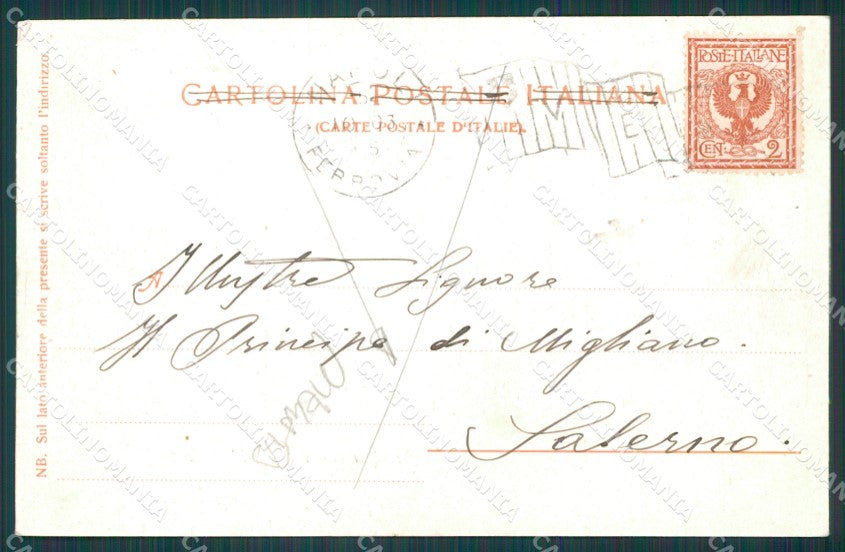 CARTOLINA POSTALE ITALIANA
(CARTE POSTALE D'ITALIE).
POSTE·ITALIANE
CEN. 2
FERROVIA
NB. Sul lato anteriore della presente si scrive soltanto l'indirizzo.
A
Illustre Signore
Il Principe di Migliano.
Salerno.
CARTOLINOMANIA